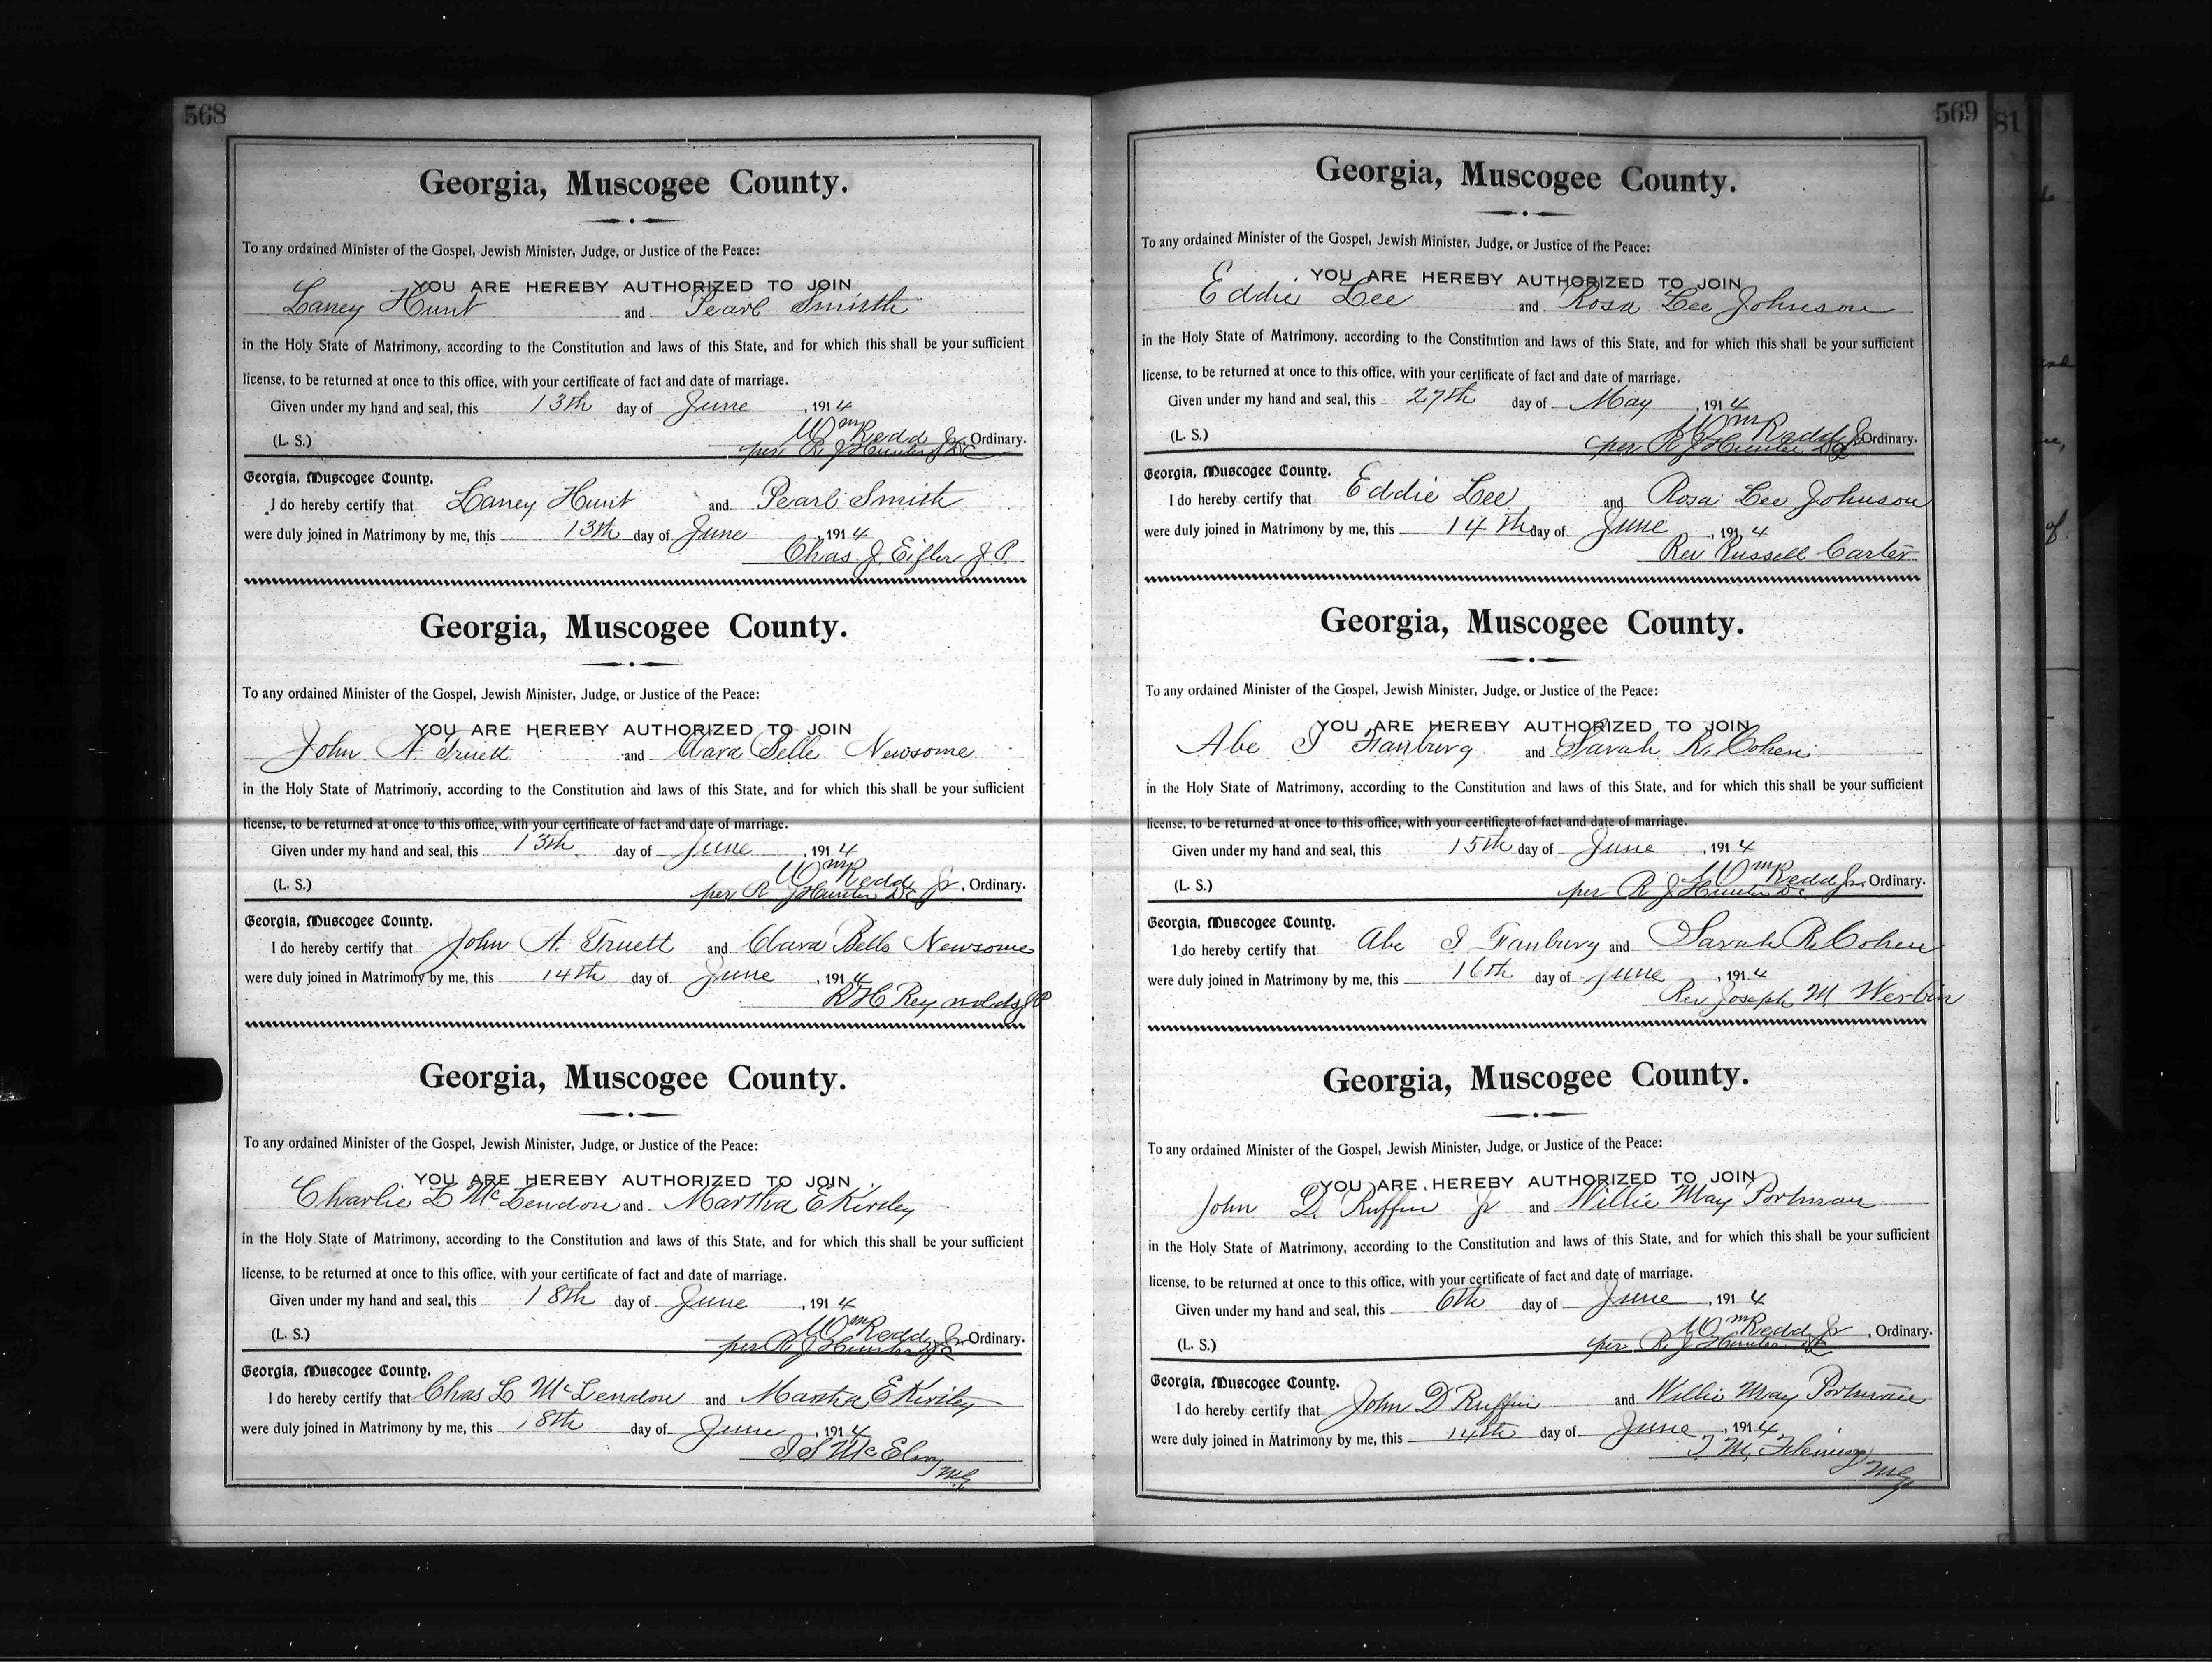 568
Georgia, Muscogee County.
To any ordained Minister of the Gospel, Jewish Minister, Judge, or Justice of the Peace:
YOU ARE HEREBY AUTHORIZED TO JOIN
Laney Hunt and Pearl Smith
in the Holy State of Matrimony, according to the Constitution and laws of this State, and for which this shall be your sufficient
license, to be returned at once to this office, with your certificate of fact and date of marriage.
Given under my hand and seal, this 13th day of June, 1914
Wm Redd Jr, Ordinary.
(L. S.) per R J Hunter DC
Georgia, Muscogee County.
I do hereby certify that Laney Hunt and Pearl Smith
were duly joined in Matrimony by me, this 13th day of June, 1914
Chas J. Eifler J P.
Georgia, Muscogee County.
To any ordained Minister of the Gospel, Jewish Minister, Judge, or Justice of the Peace:
YOU ARE HEREBY AUTHORIZED TO JOIN
John A. Truett and Clara Belle Newsome
in the Holy State of Matrimony, according to the Constitution and laws of this State, and for which this shall be your sufficient
license, to be returned at once to this office, with your certificate of fact and date of marriage.
Given under my hand and seal, this 13th day of June, 1914
Wm Redd Jr, Ordinary.
(L. S.) per R J Hunter DC
Georgia, Muscogee County.
I do hereby certify that John A. Truett and Clara Belle Newsome
were duly joined in Matrimony by me, this 14th day of June, 1914
R H Reynolds JP
Georgia, Muscogee County.
To any ordained Minister of the Gospel, Jewish Minister, Judge, or Justice of the Peace:
YOU ARE HEREBY AUTHORIZED TO JOIN
Charlie L McLendon and Martha E Kirley
in the Holy State of Matrimony, according to the Constitution and laws of this State, and for which this shall be your sufficient
license, to be returned at once to this office, with your certificate of fact and date of marriage.
Given under my hand and seal, this 18th day of June, 1914
Wm Redd Jr. Ordinary.
(L. S.) per R J Hunter DC
Georgia, Muscogee County.
I do hereby certify that Chas L McLendon and Martha E Kirley
were duly joined in Matrimony by me, this 18th day of June, 1914
McElroy
MG
569
Georgia, Muscogee County.
To any ordained Minister of the Gospel, Jewish Minister, Judge, or Justice of the Peace:
YOU ARE HEREBY AUTHORIZED TO JOIN
Eddie Lee and Rosa Lee Johnson
in the Holy State of Matrimony, according to the Constitution and laws of this State, and for which this shall be your sufficient
license, to be returned at once to this office, with your certificate of fact and date of marriage.
Given under my hand and seal, this 27th day of May, 1914
Wm Redd Jr Ordinary.
(L. S.) per R J Hunter DC
Georgia, Muscogee County.
I do hereby certify that Eddie Lee and Rosa Lee Johnson
were duly joined in Matrimony by me, this 14th day of June, 1914
Rev Russell Carter
Georgia, Muscogee County.
To any ordained Minister of the Gospel, Jewish Minister, Judge, or Justice of the Peace:
YOU ARE HEREBY AUTHORIZED TO JOIN
Abe I Fanburg and Sarah R. Cohen
in the Holy State of Matrimony, according to the Constitution and laws of this State, and for which this shall be your sufficient
license, to be returned at once to this office, with your certificate of fact and date of marriage.
Given under my hand and seal, this 15th day of June, 1914
Wm Redd Jr. Ordinary.
(L. S.) per R J Hunter DC
Georgia, Muscogee County.
I do hereby certify that Abe I Fanburg and Sarah R. Cohen
were duly joined in Matrimony by me, this 16th day of June, 1914
Rev Joseph M Werbin
Georgia, Muscogee County.
To any ordained Minister of the Gospel, Jewish Minister, Judge, or Justice of the Peace:
YOU ARE HEREBY AUTHORIZED TO JOIN
John D. Ruffin Jr and Willie May Portman
in the Holy State of Matrimony, according to the Constitution and laws of this State, and for which this shall be your sufficient
license, to be returned at once to this office, with your certificate of fact and date of marriage.
Given under my hand and seal, this 6th day of June, 1914
Wm Redd Jr, Ordinary.
(L. S.) per R J Hunter DC
Georgia, Muscogee County.
I do hereby certify that John D Ruffin and Willie May Portman
were duly joined in Matrimony by me, this 14th day of June, 1914
T. M. Fleming
MG
81